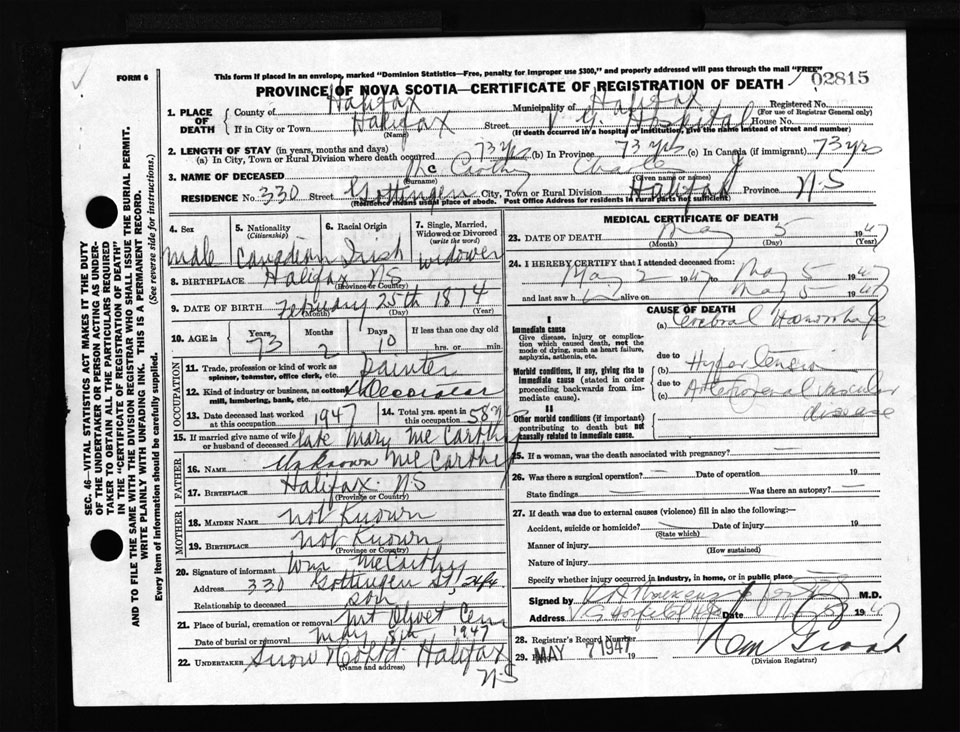 FORM 6
This form if placed in an envelope, marked "Dominion Statistics—Free, penalty for improper use $300," and properly addressed will pass through the mail "FREE"
PROVINCE OF NOVA SCOTIA—CERTIFICATE OF REGISTRATION OF DEATH
02815
SEC. 46—VITAL STATISTICS ACT MAKES IT THE DUTY
OF THE UNDERTAKER OR PERSON ACTING AS UNDER-
TAKER TO OBTAIN ALL THE PARTICULARS REQUIRED
IN THE "CERTIFICATE OF REGISTRATION OF DEATH"
AND TO FILE THE SAME WITH THE DIVISION REGISTRAR WHO SHALL ISSUE THE BURIAL PERMIT.
WRITE PLAINLY WITH UNFADING INK. THIS IS A PERMANENT RECORD.
Every item of information should be carefully supplied. (See reverse side for instructions.)
1. PLACE OF DEATH
County of Halifax Municipality of Halifax Registered No.
(For use of Registrar General only)
If in City or Town Halifax Street V G Hospital House No.
(Name) (If death occurred in a hospital or institution, give the name instead of street and number)
2. LENGTH OF STAY (in years, months and days)
(a) In City, Town or Rural Division where death occurred 73 yrs (b) In Province 73 yrs (c) In Canada (if immigrant) 73 yrs
3. NAME OF DECEASED Mc Carthy Charles J
(Surname) (Given name or names)
RESIDENCE No. 330 Street Gottingen City, Town or Rural Division Halifax Province N-S
(Residence means usual place of abode. Post Office Address for residents in rural parts not sufficient)
4. Sex
5. Nationality (Citizenship)
6. Racial Origin
7. Single, Married, Widowed or Divorced (write the word)
male Canadian Irish widower
8. BIRTHPLACE Halifax NS
(Province or Country)
9. DATE OF BIRTH February 25th 1874
(Month) (Day) (Year)
10. AGE in Years 73 Months 2 Days 10 If less than one day old
hrs. or min.
OCCUPATION
11. Trade, profession or kind of work as spinner, teamster, office clerk, etc. painter
12. Kind of industry or business, as cotton mill, lumbering, bank, etc. Decorator
13. Date deceased last worked at this occupation 1947
14. Total yrs. spent in this occupation 58 yrs
15. If married give name of wife or husband of deceased late Mary McCarthy
FATHER
16. NAME Unknown McCarthy
17. BIRTHPLACE Halifax NS
(Province or Country)
MOTHER
18. MAIDEN NAME not Known
19. BIRTHPLACE not Known
(Province or Country)
20. Signature of informant Wm McCarthy
Address 330 Gottingen St,
Relationship to deceased son
21. Place of burial, cremation or removal Mt Olivet Cem
Date of burial or removal May 8th 1947
22. UNDERTAKER Snow & Co Ltd Halifax
(Name and address)
N-S
MEDICAL CERTIFICATE OF DEATH
23. DATE OF DEATH May 5 1947
(Month) (Day) (Year)
24. I HEREBY CERTIFY that I attended deceased from:
May 2 1947 to May 5 1947
and last saw h im alive on May 5 1947
CAUSE OF DEATH
I
Immediate cause
Give disease, injury or complication which caused death, not the mode of dying, such as heart failure, asphyxia, asthenia, etc.
(a) Cerebral Haemorrhage
due to
Morbid conditions, if any, giving rise to immediate cause (stated in order proceeding backwards from immediate cause).
(b) Hypertension
due to
(c) Arterio renal vascular
disease
II
Other morbid conditions (if important) contributing to death but not causally related to immediate cause.
25. If a woman, was the death associated with pregnancy?
26. Was there a surgical operation? — Date of operation 19
State findings Was there an autopsy? —
27. If death was due to external causes (violence) fill in also the following:—
Accident, suicide or homicide? Date of injury 19
(State which)
Manner of injury
(How sustained)
Nature of injury
Specify whether injury occurred in industry, in home, or in public place
Signed by M.D.
Address V.G. Hospital Hfx Date 1947
28. Registrar's Record Number
29. MAY 7 1947 19
(Division Registrar)